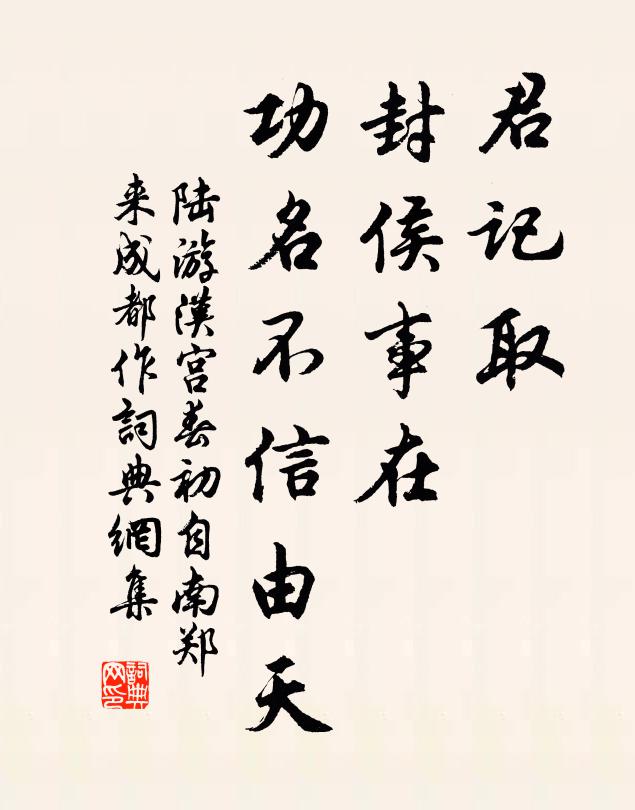 君记取
封侯事在
功名不信由天
陆游漢宫春初自南郑
来成都作詞典網集
詞典
网印